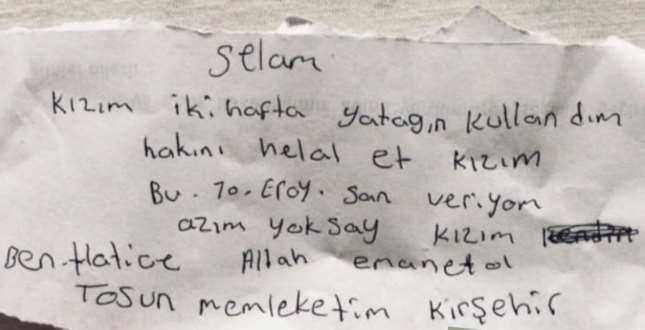 selam
KIZIm iki hafta yatagın kullandım
hakını helal et KIZIM
Bu. 70. Eroy. san veriyom
azım yoksay KIZIM
Ben Hatice Allah emanet ol
Tosun memleketim Kırşehir